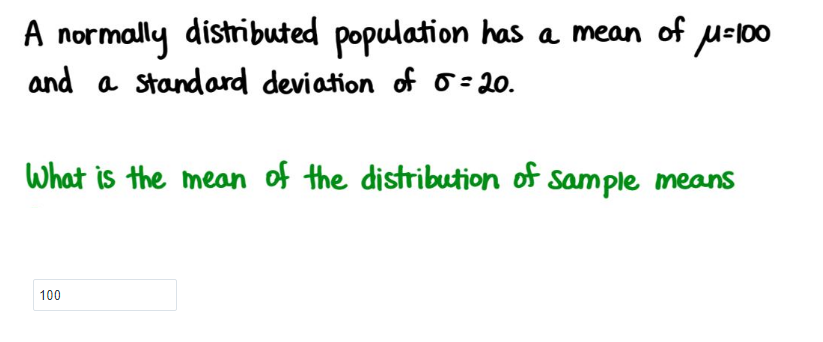 A normally distributed population has a mean of μ=100
and a standard deviation of σ=20.
What is the mean of the distribution of sample means
100